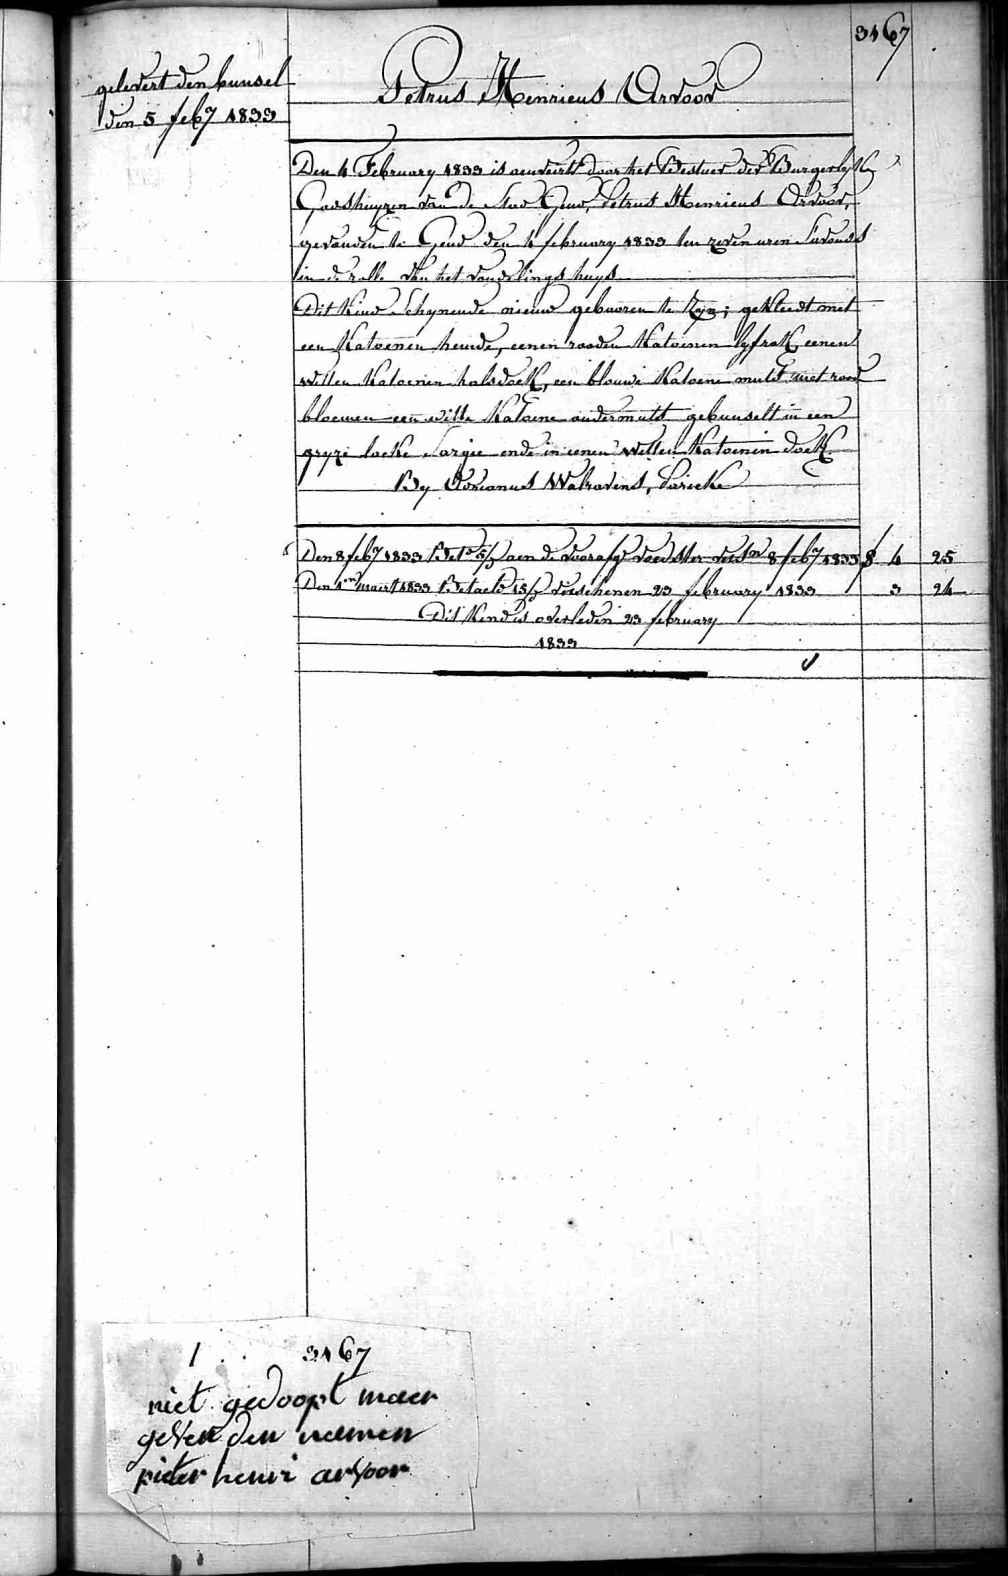 3467
gelevert den bunsel
den 5 feb7 1833
Petrus Henricus Arvoor
Den 4 February 1833 is aenveirt door het Bestuer der Burgerlyk
Godshuyzen van de Stad Gend, Petrus Henricus Arvoor,
gevonden te Gend den 4 february 1833 ten zeven uren savonds
in de rolle van het vondelings huys
Dit Kind schynende nieuw gebooren te Zyn; gekleedt met
een Katoenen hemde, eenen rooden Katoenen lyfrok, eenen
witten Katoenen halsdoek, een blouwe Katoene muts met roode
bloemen een witte Katoene ondermuts gebunselt in een
gryze sargie ende in eenen witten Katoenen doek
By Adrianus Walravens, Paricke
Den 8 feb7 1833 Bet aen de voorafg voedster 8 feb7 1833 8 4 25
Den 1en maert 1833 Betaelt 15/ verschenen 23 february 1833 3 24
Dit Kind is overleden 23 february
1833
1 3467
niet gedoopt maer
geven den naemen
pieter henri arvoor